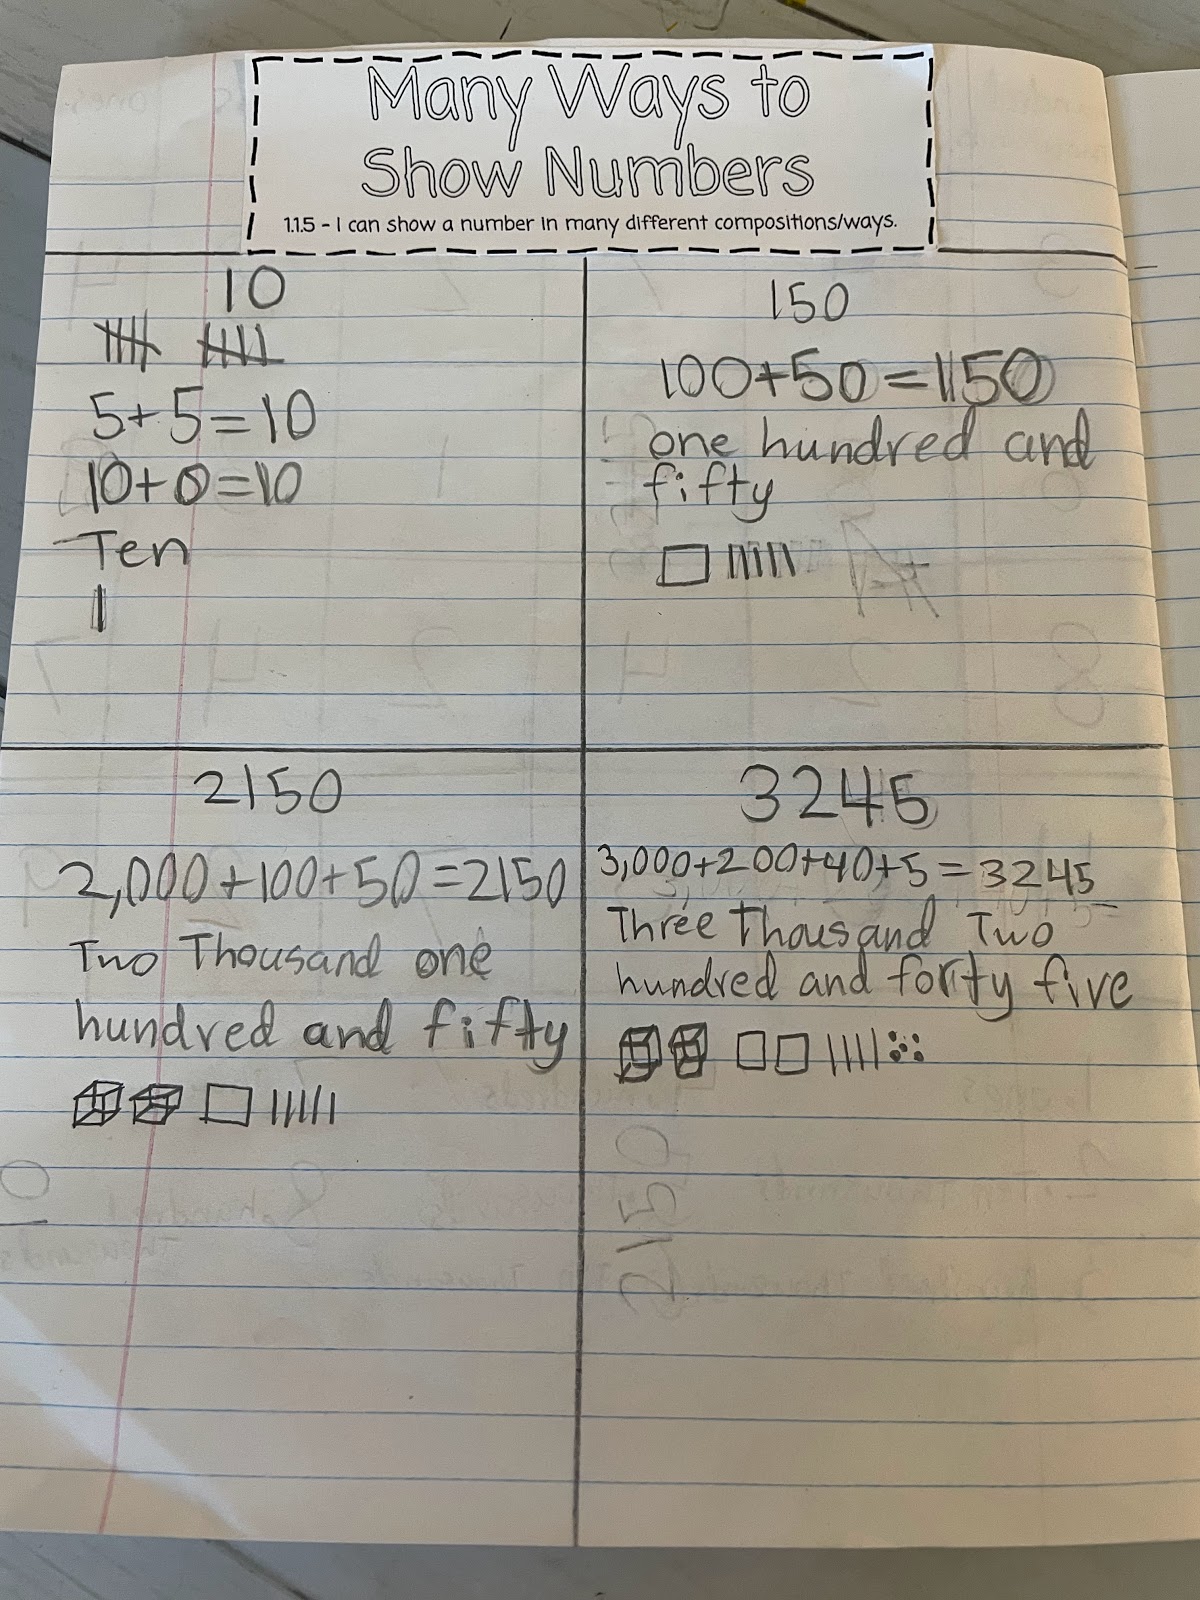 Many Ways to
Show Numbers
1.1.5 - I can show a number in many different compositions/ways.
10
5+5=10
10+0=10
Ten
150
100+50=150
one hundred and
fifty
2150
2,000+100+50=2150
Two Thousand one
hundred and fifty
3245
3,000+200+40+5=3245
Three Thousand Two
hundred and forty five